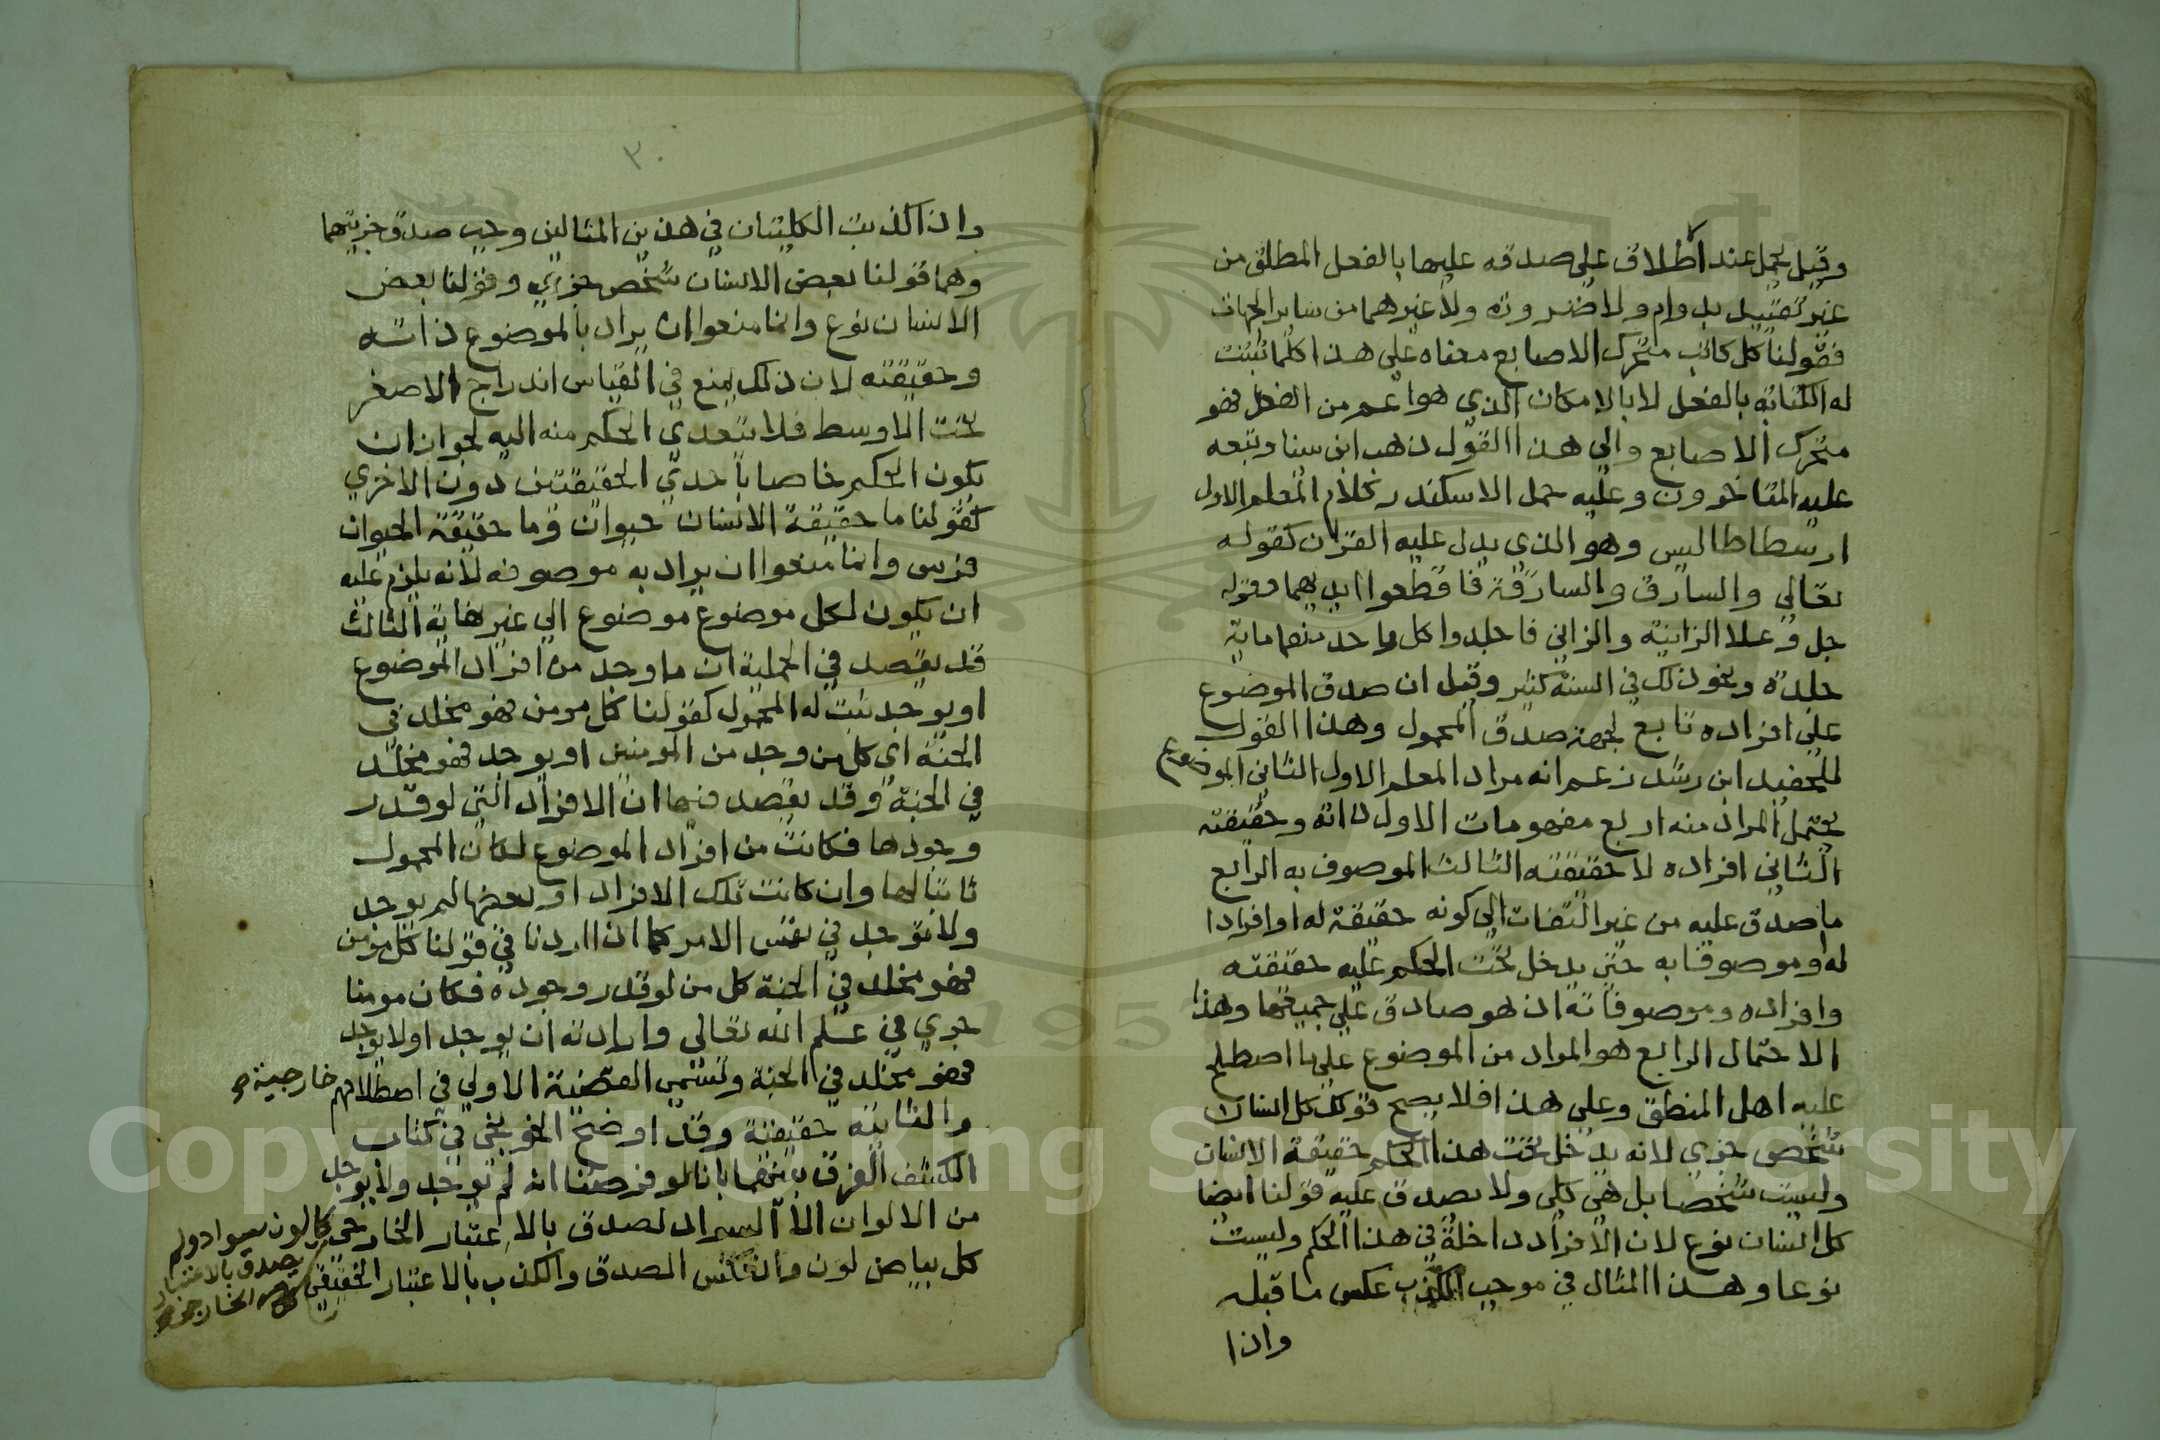 وقيل يحمل عند الاطلاق علي صدقه عليها بالفعل المطلق من
غير تقييد بدوام ولا ضرورة ولا غيرهما من ساير الجهات
فقولنا كل كاتب متحرك الاصابع معناه علي هذا كلما ثبتت
له الكتابة بالفعل لا بالامكان الذي هو اعم من الفعل فهو
متحرك الاصابع والي هذا القول ذهب ابن سينا وتبعه
عليه المتاخرون وعليه حمل الاسكندر كلام المعلم الاول
ارسطاطاليس وهو الذي يدل عليه القران كقوله
تعالي والسارق والسارقة فاقطعوا ايديهما وقوله
جل وعلا الزانية والزاني فاجلدوا كل واحد منهما ماية
جلدة ونحو ذلك في السنة كثير وقيل ان صدق الموضوع
علي افراده تابع لجهة صدق المحمول وهذا القول
للحفيد ابن رشد زعم انه مراد المعلم الاول الثاني الموضوع
يحتمل المراد منه اربع مفهومات الاول ذاته وحقيقته
الثاني افراده لا حقيقته الثالث الموصوف به الرابع
ما صدق عليه من غير التفات الي كونه حقيقة له او افرادا
له او موصوفا به حتي يدخل تحت الحكم عليه حقيقته
وافراده وموصوفاته اذ هو صادق علي جميعها وهذا
الاحتمال الرابع هو المراد من الموضوع علي ما اصطلح
عليه اهل المنطق وعلي هذا فلا يصح قولك كل انسان
شخص جزي لانه يدخل تحت هذا الحكم حقيقة الانسان
وليست شخصا بل هي كلي ولا يصدق عليه قولنا ايضا
كل انسان نوع لان الافراد داخلة في هذا الحكم وليست
نوعا وهذا المثال في موجب الكذب عكس ما قبله
واذا
٣٠
واذا كذبت الكليتان في هذين المثالين وجب صدق جزيتهما
وهما قولنا بعض الانسان شخص جزي وقولنا بعض
الانسان نوع وانما منعوا ان يراد بالموضوع ذاته
وحقيقته لان ذلك يمنع في القياس اندراج الاصغر
تحت الاوسط فلا يتعدي الحكم منه اليه لجواز ان
يكون الحكم خاصا باحدي الحقيقتين دون الاخري
كقولنا ما حقيقة الانسان حيوان وما حقيقة الحيوان
فرس وانما منعوا ان يراد به موصوفه لانه يلزم عليه
ان يكون لكل موضوع موضوع الي غير نهاية الثالث
قد يقصد في الحملية ان ما وجد من افراد الموضوع
او يوجد ثبت له المحمول كقولنا كل مومن فهو مخلد في
الجنة اي كل من وجد من المومنين او يوجد فهو مخلد
في الجنة وقد يقصد فيها ان الافراد التي لو قدر
وجودها فكانت من افراد الموضوع لكان المحمول
ثابتا لها وان كانت تلك الافراد او بعضها لم يوجد
ولا يوجد في نفس الامر كما اذا اردنا في قولنا كل مومن
فهو مخلد في الجنة كل من لو قدر وجوده فكان مومنا
جري في علم الله تعالي وارادته ان يوجد او لا يوجد
فهو مخلد في الجنة وتسمي القضية الاولي في اصطلاحهم خارجية
والثانية حقيقية وقد اوضح الخونجي في كتاب
الكشف الفرق بينهما بانا لو فرضنا انه لم توجد ولا يوجد
من الالوان الا السواد لصدق بالاعتبار الخارجي كل لون سواد ولم
يصدق بالاعتبار الخارجي
كل بياض لون وانعكس الصدق والكذب بالاعتبار الحقيقي